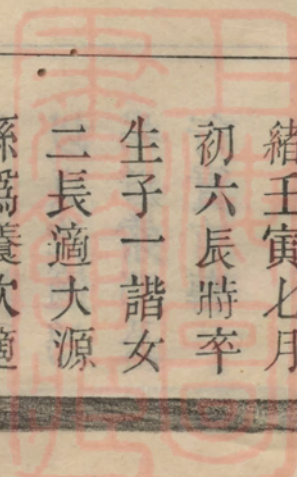 緒壬寅七月
初六辰時卒
生子一諧女
二長適大源
孫爲養次適